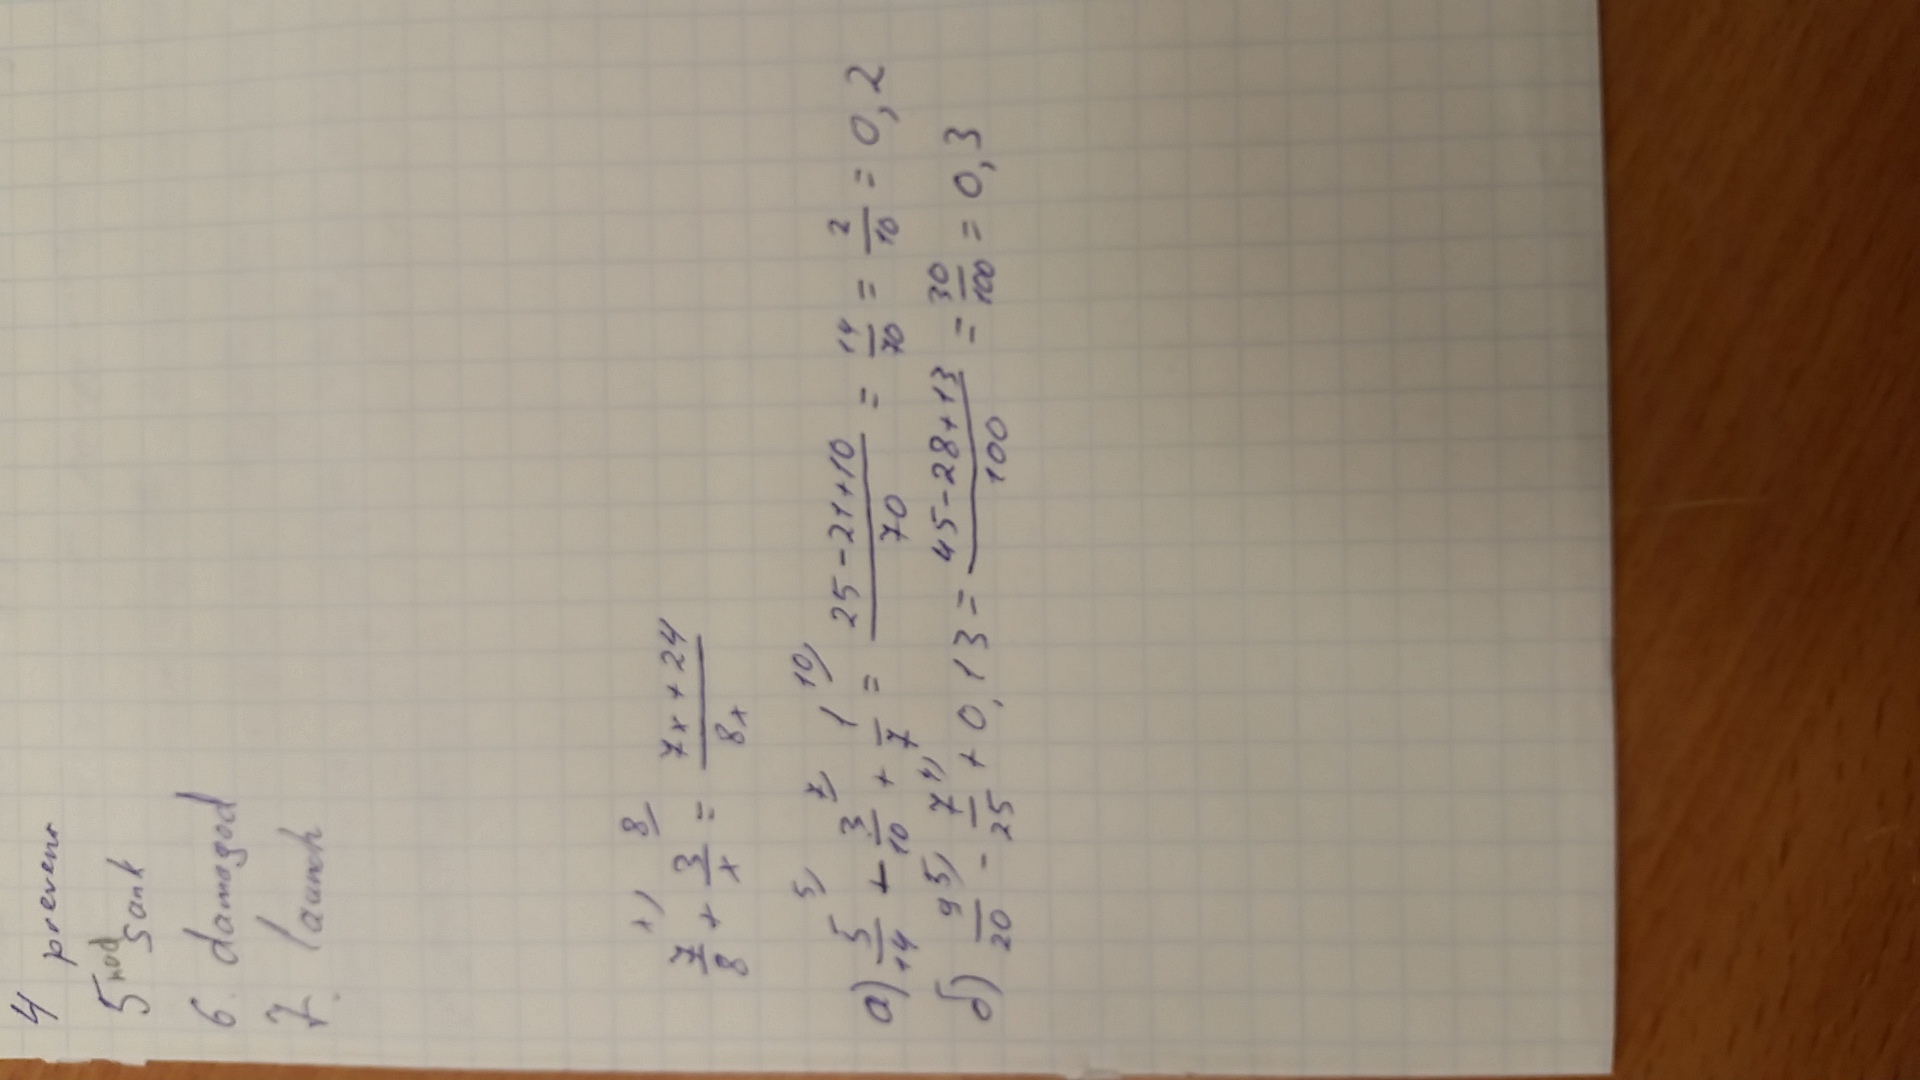 4 prevent
5 had sank
6. damaged
7. launch
x) 8)
7/8 + 3/x = (7x + 24)/8x
5) 7) 10)
а) 5/14 - 3/10 + 1/7 = (25 - 21 + 10)/70 = 14/70 = 2/10 = 0,2
5) 4)
б) 9/20 - 7/25 + 0,13 = (45 - 28 + 13)/100 = 30/100 = 0,3